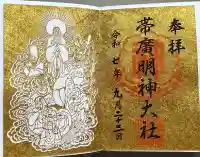 奉拝
帯廣明神大社
令和七年九月二十二日